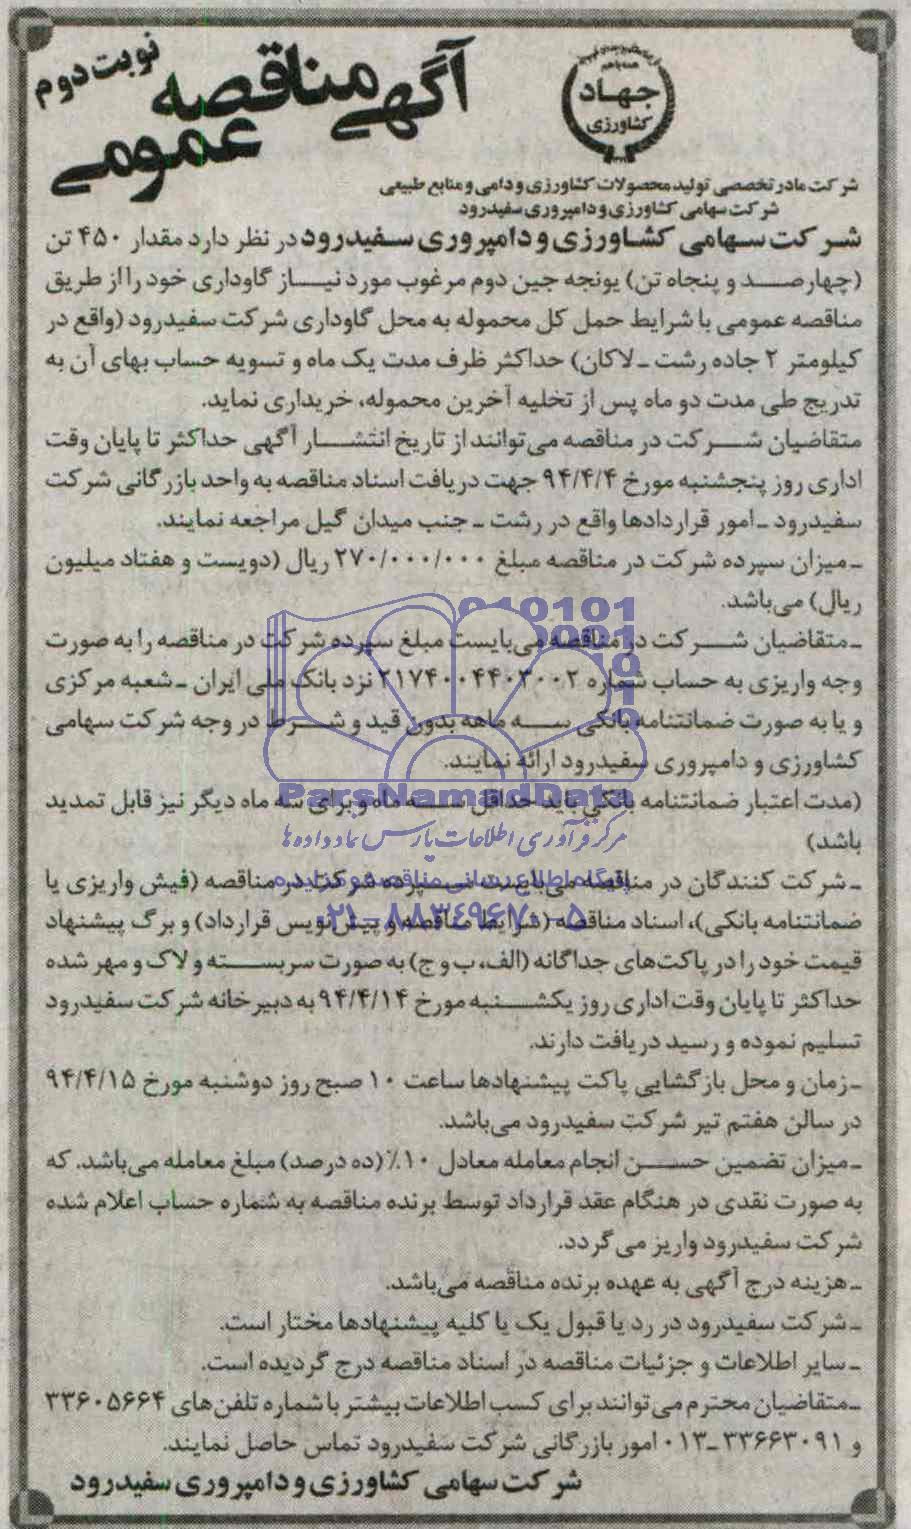 جهاد
کشاورزی
آگهی مناقصه
عمومی
نوبت دوم
شرکت مادر تخصصی تولید محصولات کشاورزی و دامی و منابع طبیعی
شرکت سهامی کشاورزی و دامپروری سفیدرود
شرکت سهامی کشاورزی و دامپروری سفیدرود در نظر دارد مقدار ۴۵۰ تن
(چهارصد و پنجاه تن) یونجه چین دوم مرغوب مورد نیاز گاوداری خود را از طریق
مناقصه عمومی با شرایط حمل کل محموله به محل گاوداری شرکت سفیدرود (واقع در
کیلومتر ۲ جاده رشت ـ لاکان) حداکثر ظرف مدت یک ماه و تسویه حساب بهای آن به
تدریج طی مدت دو ماه پس از تخلیه آخرین محموله، خریداری نماید.
متقاضیان شرکت در مناقصه می‌توانند از تاریخ انتشار آگهی حداکثر تا پایان وقت
اداری روز پنجشنبه مورخ ۹۴/۴/۴ جهت دریافت اسناد مناقصه به واحد بازرگانی شرکت
سفیدرود ـ امور قراردادها واقع در رشت ـ جنب میدان گیل مراجعه نمایند.
ـ میزان سپرده شرکت در مناقصه مبلغ ۲۷۰/۰۰۰/۰۰۰ ریال (دویست و هفتاد میلیون
ریال) می‌باشد.
ـ متقاضیان شرکت در مناقصه می‌بایست مبلغ سپرده شرکت در مناقصه را به صورت
وجه واریزی به حساب شماره ۲۱۷۴۰۰۴۴۰۳۰۰۲ نزد بانک ملی ایران ـ شعبه مرکزی
و یا به صورت ضمانتنامه بانکی سه ماهه بدون قید و شرط در وجه شرکت سهامی
کشاورزی و دامپروری سفیدرود ارائه نمایند.
(مدت اعتبار ضمانتنامه بانکی باید حداقل سه ماه و برای سه ماه دیگر نیز قابل تمدید
باشد)
ParsNamadData
مرکز فرآوری اطلاعات پارس نماد داده ها
پایگاه اطلاع رسانی مناقصه و مزایده
۰۲۱-۸۸۳۴۹۶۷۰-۵
ـ شرکت کنندگان در مناقصه می‌بایست سپرده شرکت در مناقصه (فیش واریزی یا
ضمانتنامه بانکی)، اسناد مناقصه (شرایط مناقصه و پیش‌نویس قرارداد) و برگ پیشنهاد
قیمت خود را در پاکت‌های جداگانه (الف، ب و ج) به صورت سربسته و لاک و مهر شده
حداکثر تا پایان وقت اداری روز یکشنبه مورخ ۹۴/۴/۱۴ به دبیرخانه شرکت سفیدرود
تسلیم نموده و رسید دریافت دارند.
ـ زمان و محل بازگشایی پاکت پیشنهادها ساعت ۱۰ صبح روز دوشنبه مورخ ۹۴/۴/۱۵
در سالن هفتم تیر شرکت سفیدرود می‌باشد.
ـ میزان تضمین حسن انجام معامله معادل ۱۰٪ (ده درصد) مبلغ معامله می‌باشد. که
به صورت نقدی در هنگام عقد قرارداد توسط برنده مناقصه به شماره حساب اعلام شده
شرکت سفیدرود واریز می گردد.
ـ هزینه درج آگهی به عهده برنده مناقصه می‌باشد.
ـ شرکت سفیدرود در رد یا قبول یک یا کلیه پیشنهادها مختار است.
ـ سایر اطلاعات و جزئیات مناقصه در اسناد مناقصه درج گردیده است.
ـ متقاضیان محترم می‌توانند برای کسب اطلاعات بیشتر با شماره تلفن‌های ۳۳۶۰۵۶۶۴
و ۳۳۶۶۳۰۹۱-۰۱۳ امور بازرگانی شرکت سفیدرود تماس حاصل نمایند.
شرکت سهامی کشاورزی و دامپروری سفیدرود